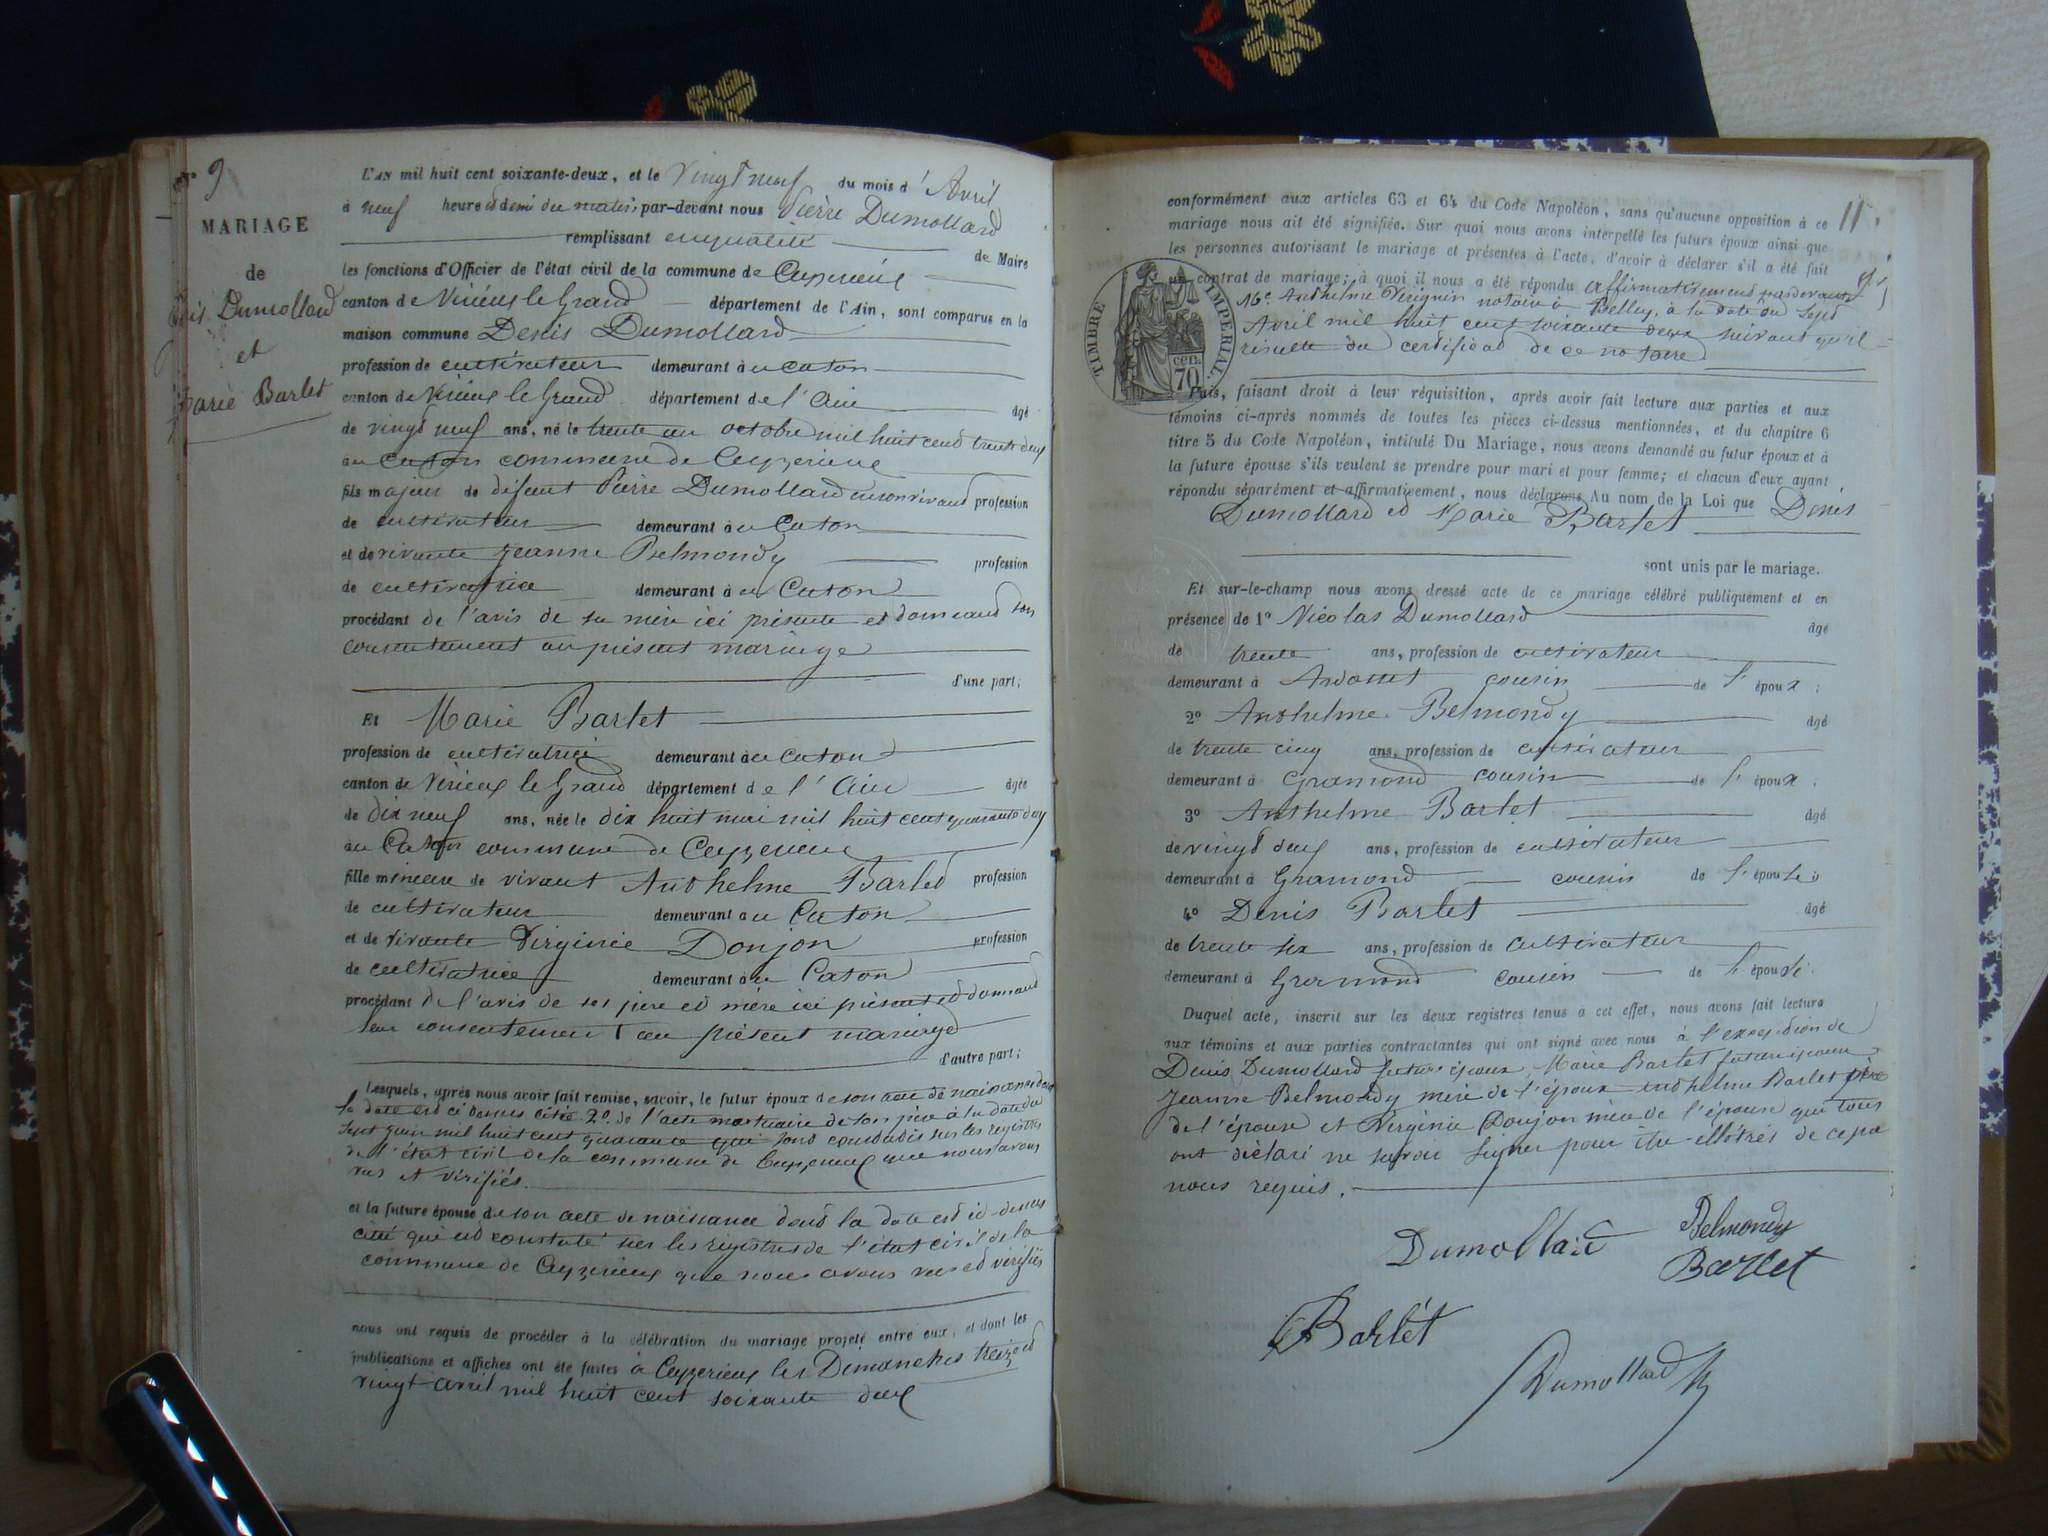 9
MARIAGE
de
Dumollard
et
Marie Barlet
L'AN mil huit cent soixante-deux, et le vingt neuf du mois d'Avril
à neuf heure et demi du matin par-devant nous Pierre Dumollard
remplissant en qualité de Maire
les fonctions d'Officier de l'état civil de la commune de Ceyzerieu
canton de Virieu le Grand département de l'Ain, sont comparus en la
maison commune Denis Dumollard
profession de cultivateur demeurant à Caton
canton de Virieu le Grand département de l'Ain âgé
de vingt neuf ans, né le trente un octobre mil huit cent trente deux
au Caton commune de Ceyzerieu
fils majeur de défunt Pierre Dumollard en son vivant profession
de cultivateur demeurant à Caton
et de vivante Jeanne Belmondy profession
de cultivatrice demeurant à Caton
procédant de l'avis de sa mère ici présente et donnant son
consentement au présent mariage
d'une part;
Et Marie Barlet
profession de cultivatrice demeurant à Caton
canton de Virieu le Grand département de l'Ain âgée
de dix neuf ans, née le dix huit mai mil huit cent quarante deux
au Caton commune de Ceyzerieu
fille mineure de vivant Anthelme Barlet profession
de cultivateur demeurant au Caton
et de vivante Virginie Donjon profession
de cultivatrice demeurant à Caton
procédant de l'avis de ses père et mère ici présent et donnant
leur consentement au présent mariage
d'autre part;
Lesquels, après nous avoir fait remise, savoir, le futur époux de son acte de naissance dont
la date est ci dessus citée 2º de l'acte mortuaire de son père à la date du
sept juin mil huit cent quarante que sont constatés sur les registres
de l'état civil de la commune de Ceyzerieu que nous avons
vus et vérifiés.
et la future épouse de son acte de naissance dont la date est ci-dessus
citée qui est constaté sur les registres de l'état civil de la
commune de Ceyzerieu que nous avons vus et vérifiés
nous ont requis de procéder à la célébration du mariage projeté entre eux, et dont les
publications et affiches ont été faites à Ceyzerieu les Dimanches treize et
vingt avril mil huit cent soixante deux
11.
conformément aux articles 63 et 64 du Code Napoléon, sans qu'aucune opposition à ce
mariage nous ait été signifiée. Sur quoi nous avons interpellé les futurs époux ainsi que
les personnes autorisant le mariage et présentes à l'acte, d'avoir à déclarer s'il a été fait
un contrat de mariage; à quoi il nous a été répondu affirmativement par devant
Me Anthelme notaire à Belley, à la date du sept
Avril mil huit cent soixante deux suivant qu'il
résulte du certificat de ce notaire
TIMBRE IMPERIAL.
70 cen.
Puis, faisant droit à leur réquisition, après avoir fait lecture aux parties et aux
témoins ci-après nommés de toutes les pièces ci-dessus mentionnées, et du chapitre 6
titre 5 du Code Napoléon, intitulé Du Mariage, nous avons demandé au futur époux et à
la future épouse s'ils veulent se prendre pour mari et pour femme; et chacun d'eux ayant
répondu séparément et affirmativement, nous déclarons Au nom de la Loi que Denis
Dumollard et Marie Barlet
sont unis par le mariage.
Et sur-le-champ nous avons dressé acte de ce mariage célébré publiquement et en
présence de 1º Nicolas Dumollard âgé
de trente ans, profession de cultivateur
demeurant à cousin de l'époux;
2º Anthelme Belmondy âgé
de trente cinq ans, profession de cultivateur
demeurant à Gramond cousin de l'époux.
3º Anthelme Barlet âgé
de vingt deux ans, profession de cultivateur
demeurant à Gramond cousin de l'épouse
4º Denis Barlet âgé
de trente six ans, profession de cultivateur
demeurant à Gramond cousin de l'épouse.
Duquel acte, inscrit sur les deux registres tenus à cet effet, nous avons fait lecture
aux témoins et aux parties contractantes qui ont signé avec nous à l'exception de
Denis Dumollard futur époux, Marie Barlet future épouse
Jeanne Belmondy mère de l'époux Anthelme Barlet père
de l'épouse et Virginie Donjon mère de l'épouse qui tous
ont déclaré ne savoir signer pour être illétrés de ce par
nous requis.
Dumollard Belmondy
Barlet
Barlet
Dumollard